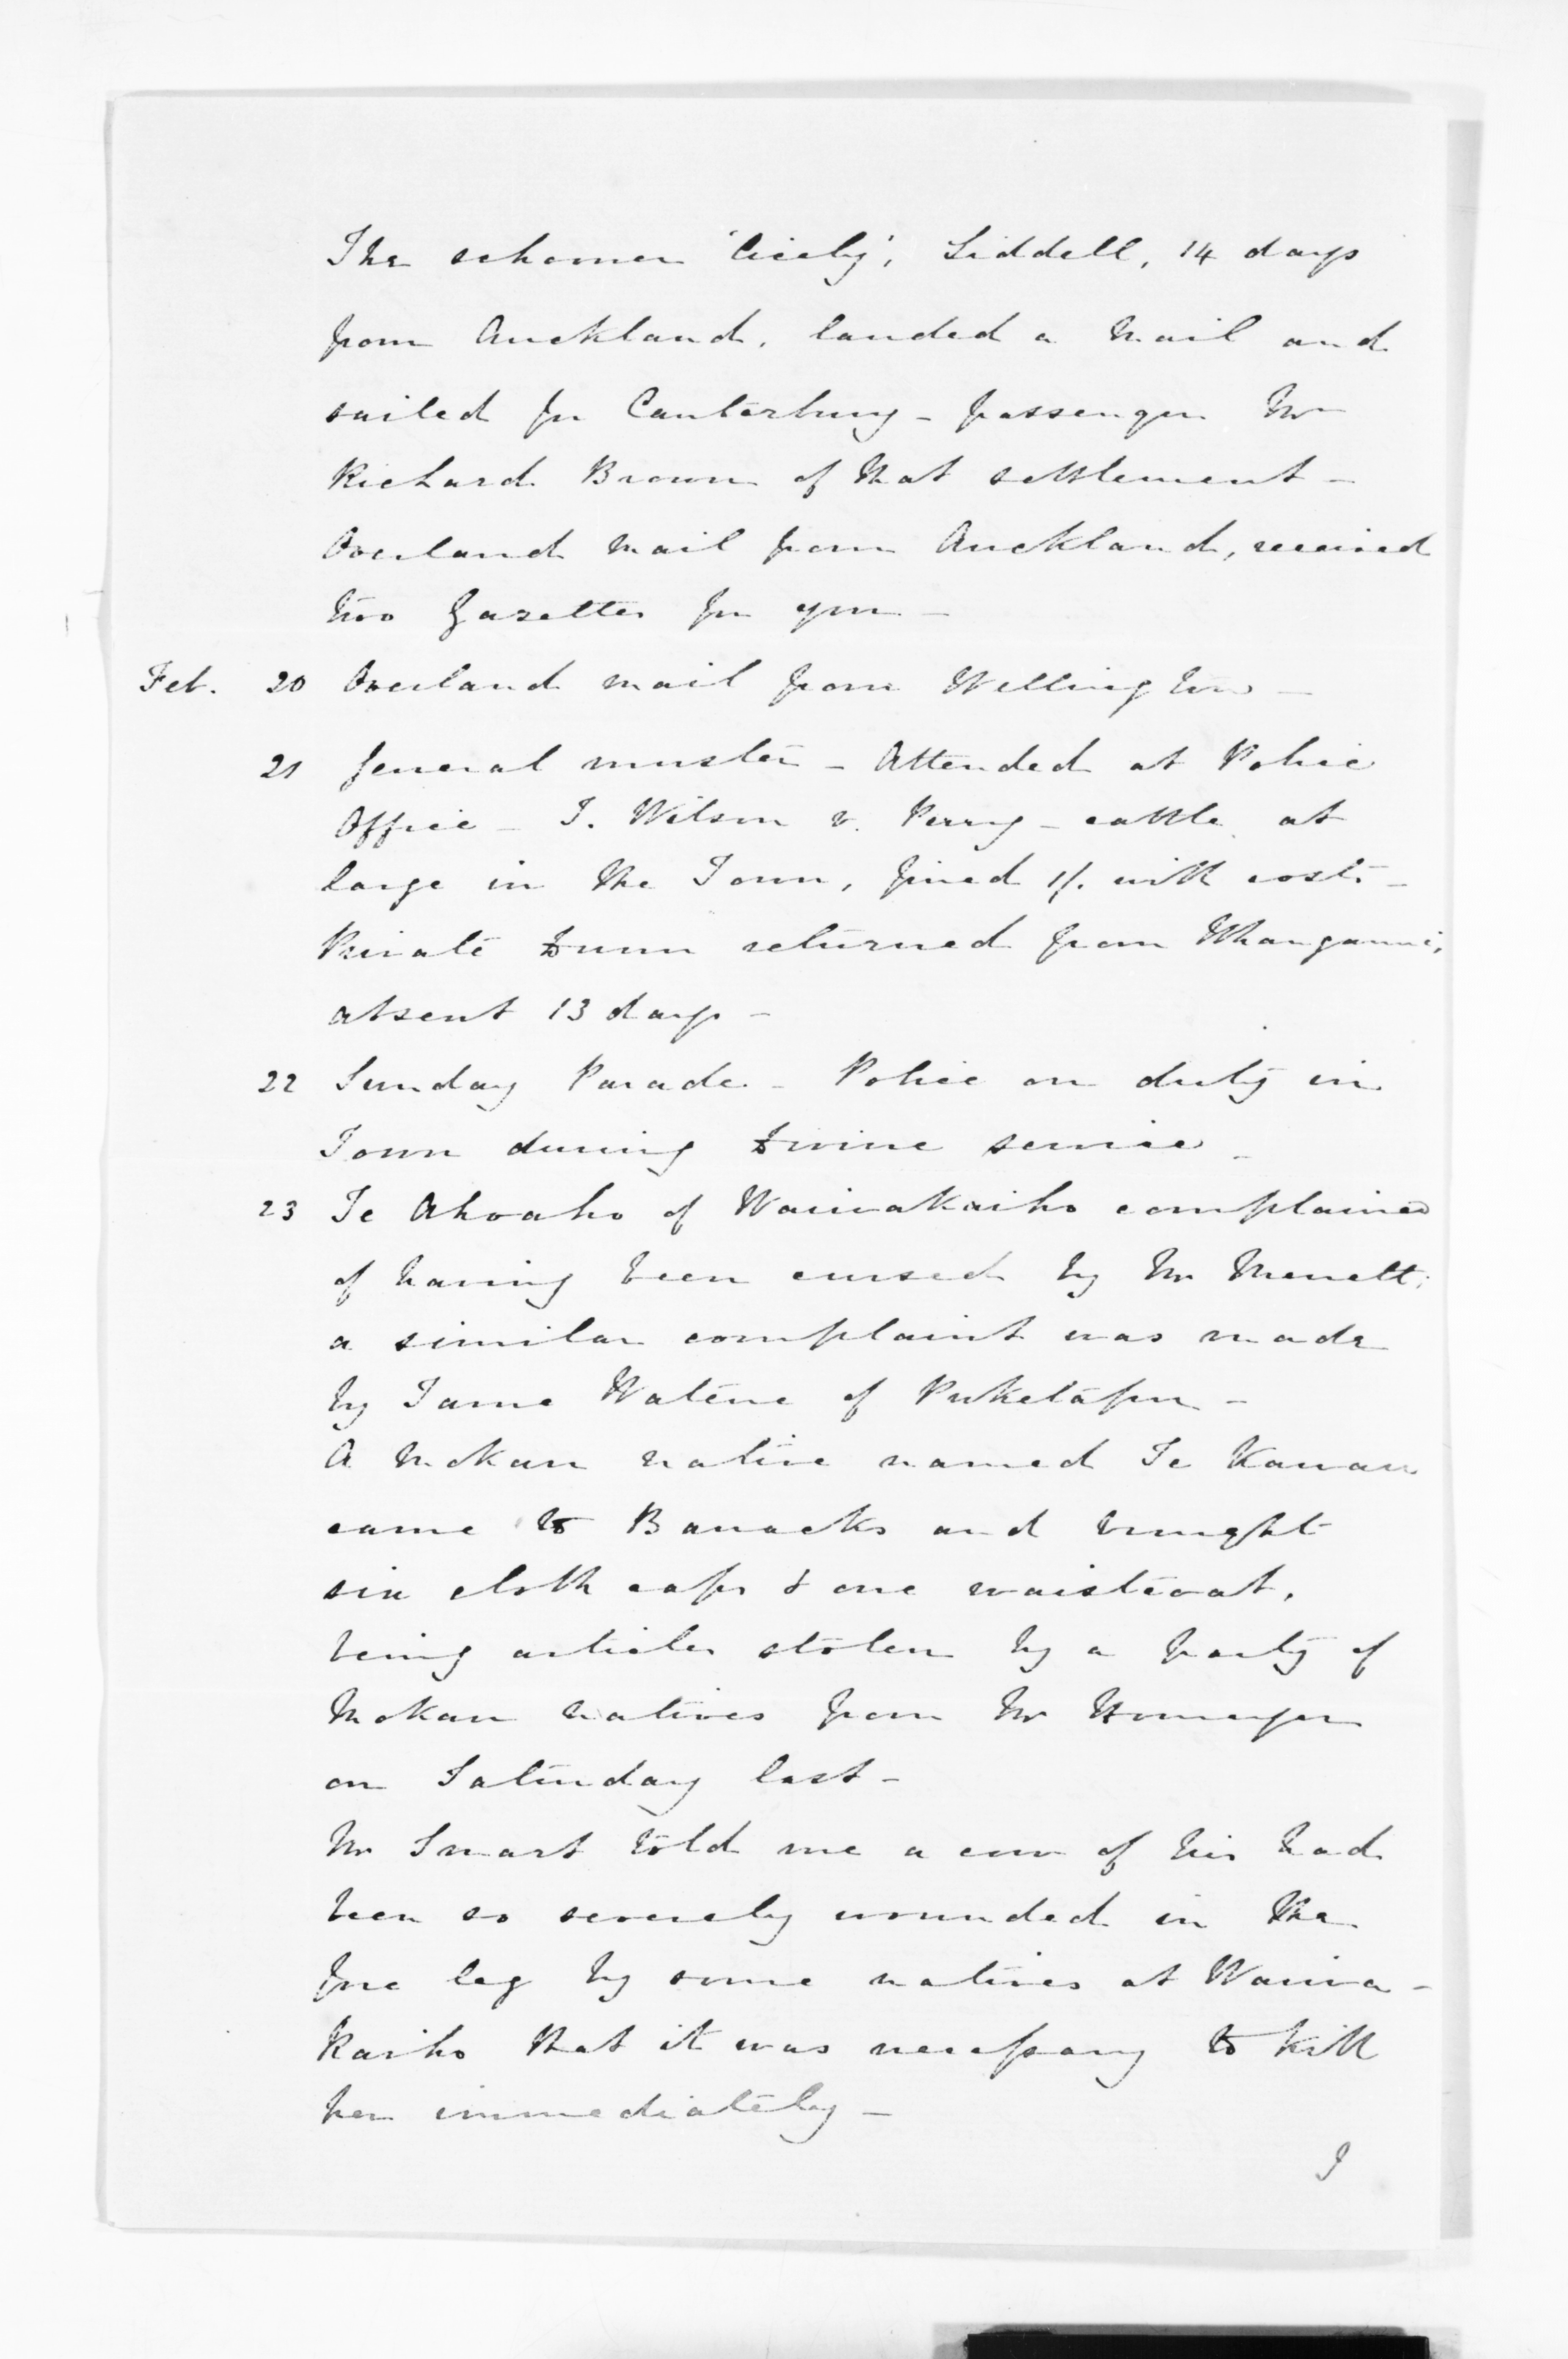 The schooner 'Cicely', Liddell, 14 days
from Auckland, landed a mail and
sailed for Canterbury - passenger Mr
Richard Brown of that settlement -
Overland mail from Auckland, received
two Gazettes for you -
Feb. 20 Overland mail from Wellington -
21 General muster - Attended at Police
Office - J. Wilson v. Perry - cattle at
large in the Town, fined 1/. with costs -
Private Dunn returned from Whanganui,
absent 13 days -
22 Sunday Parade - Police on duty in
Town during Divine service -
23 Te Ahoaho of Waiwakaiho complained
of having been cursed by Mr
a similar complaint was made
by Tame Watene of Puketapu -
A Mokau native named Te Kauau
came to Barracks and brought
six cloth caps & one waistcoat,
being articles stolen by a party of
Mokau natives from Mr Homeyer
on Saturday last -
Mr Smart told me a cow of his had
been so severely wounded in the
fore leg by some natives at Waiwa-
kaiho that it was necessary to kill
her immediately -
I